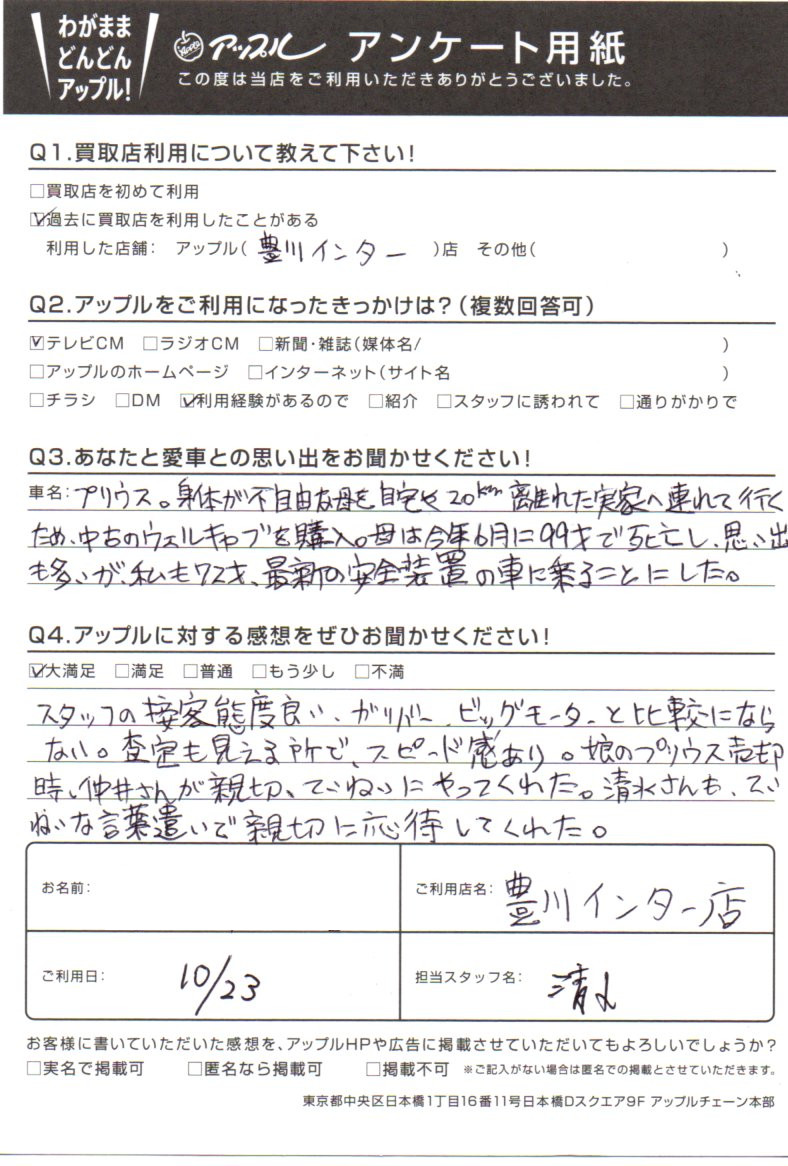 わがまま
どんどん
アップル!
APPLE アップル アンケート用紙
この度は当店をご利用いただきありがとうございました。
Q1.買取店利用について教えて下さい!
□買取店を初めて利用
☑過去に買取店を利用したことがある
利用した店舗: アップル( 豊川インター )店 その他( )
Q2.アップルをご利用になったきっかけは?(複数回答可)
☑テレビCM □ラジオCM □新聞・雑誌(媒体名/ )
□アップルのホームページ □インターネット(サイト名 )
□チラシ □DM ☑利用経験があるので □紹介 □スタッフに誘われて □通りがかりで
Q3.あなたと愛車との思い出をお聞かせください!
車名:プリウス。身体が不自由な母を自宅や20km離れた実家へ連れて行く
ため、中古のウェルキャブを購入。母は今年6月に99才で死亡し、思い出
も多いが、私も72才、最新の安全装置の車に乗ることにした。
Q4.アップルに対する感想をぜひお聞かせください!
☑大満足 □満足 □普通 □もう少し □不満
スタッフの接客態度良い、ガリバー、ビッグモーターと比較になら
ない。査定も見える所で、スピード感あり。娘のプリウス売却
時、仲井さんが親切、ていねいにやってくれた。清水さんも、てい
ねいな言葉遣いで親切に応待してくれた。
お名前:
ご利用店名: 豊川インター店
ご利用日: 10/23
担当スタッフ名: 清水
お客様に書いていただいた感想を、アップルHPや広告に掲載させていただいてもよろしいでしょうか?
□実名で掲載可 □匿名なら掲載可 □掲載不可 ※ご記入がない場合は匿名での掲載とさせていただきます。
東京都中央区日本橋1丁目16番11号日本橋Dスクエア9F アップルチェーン本部